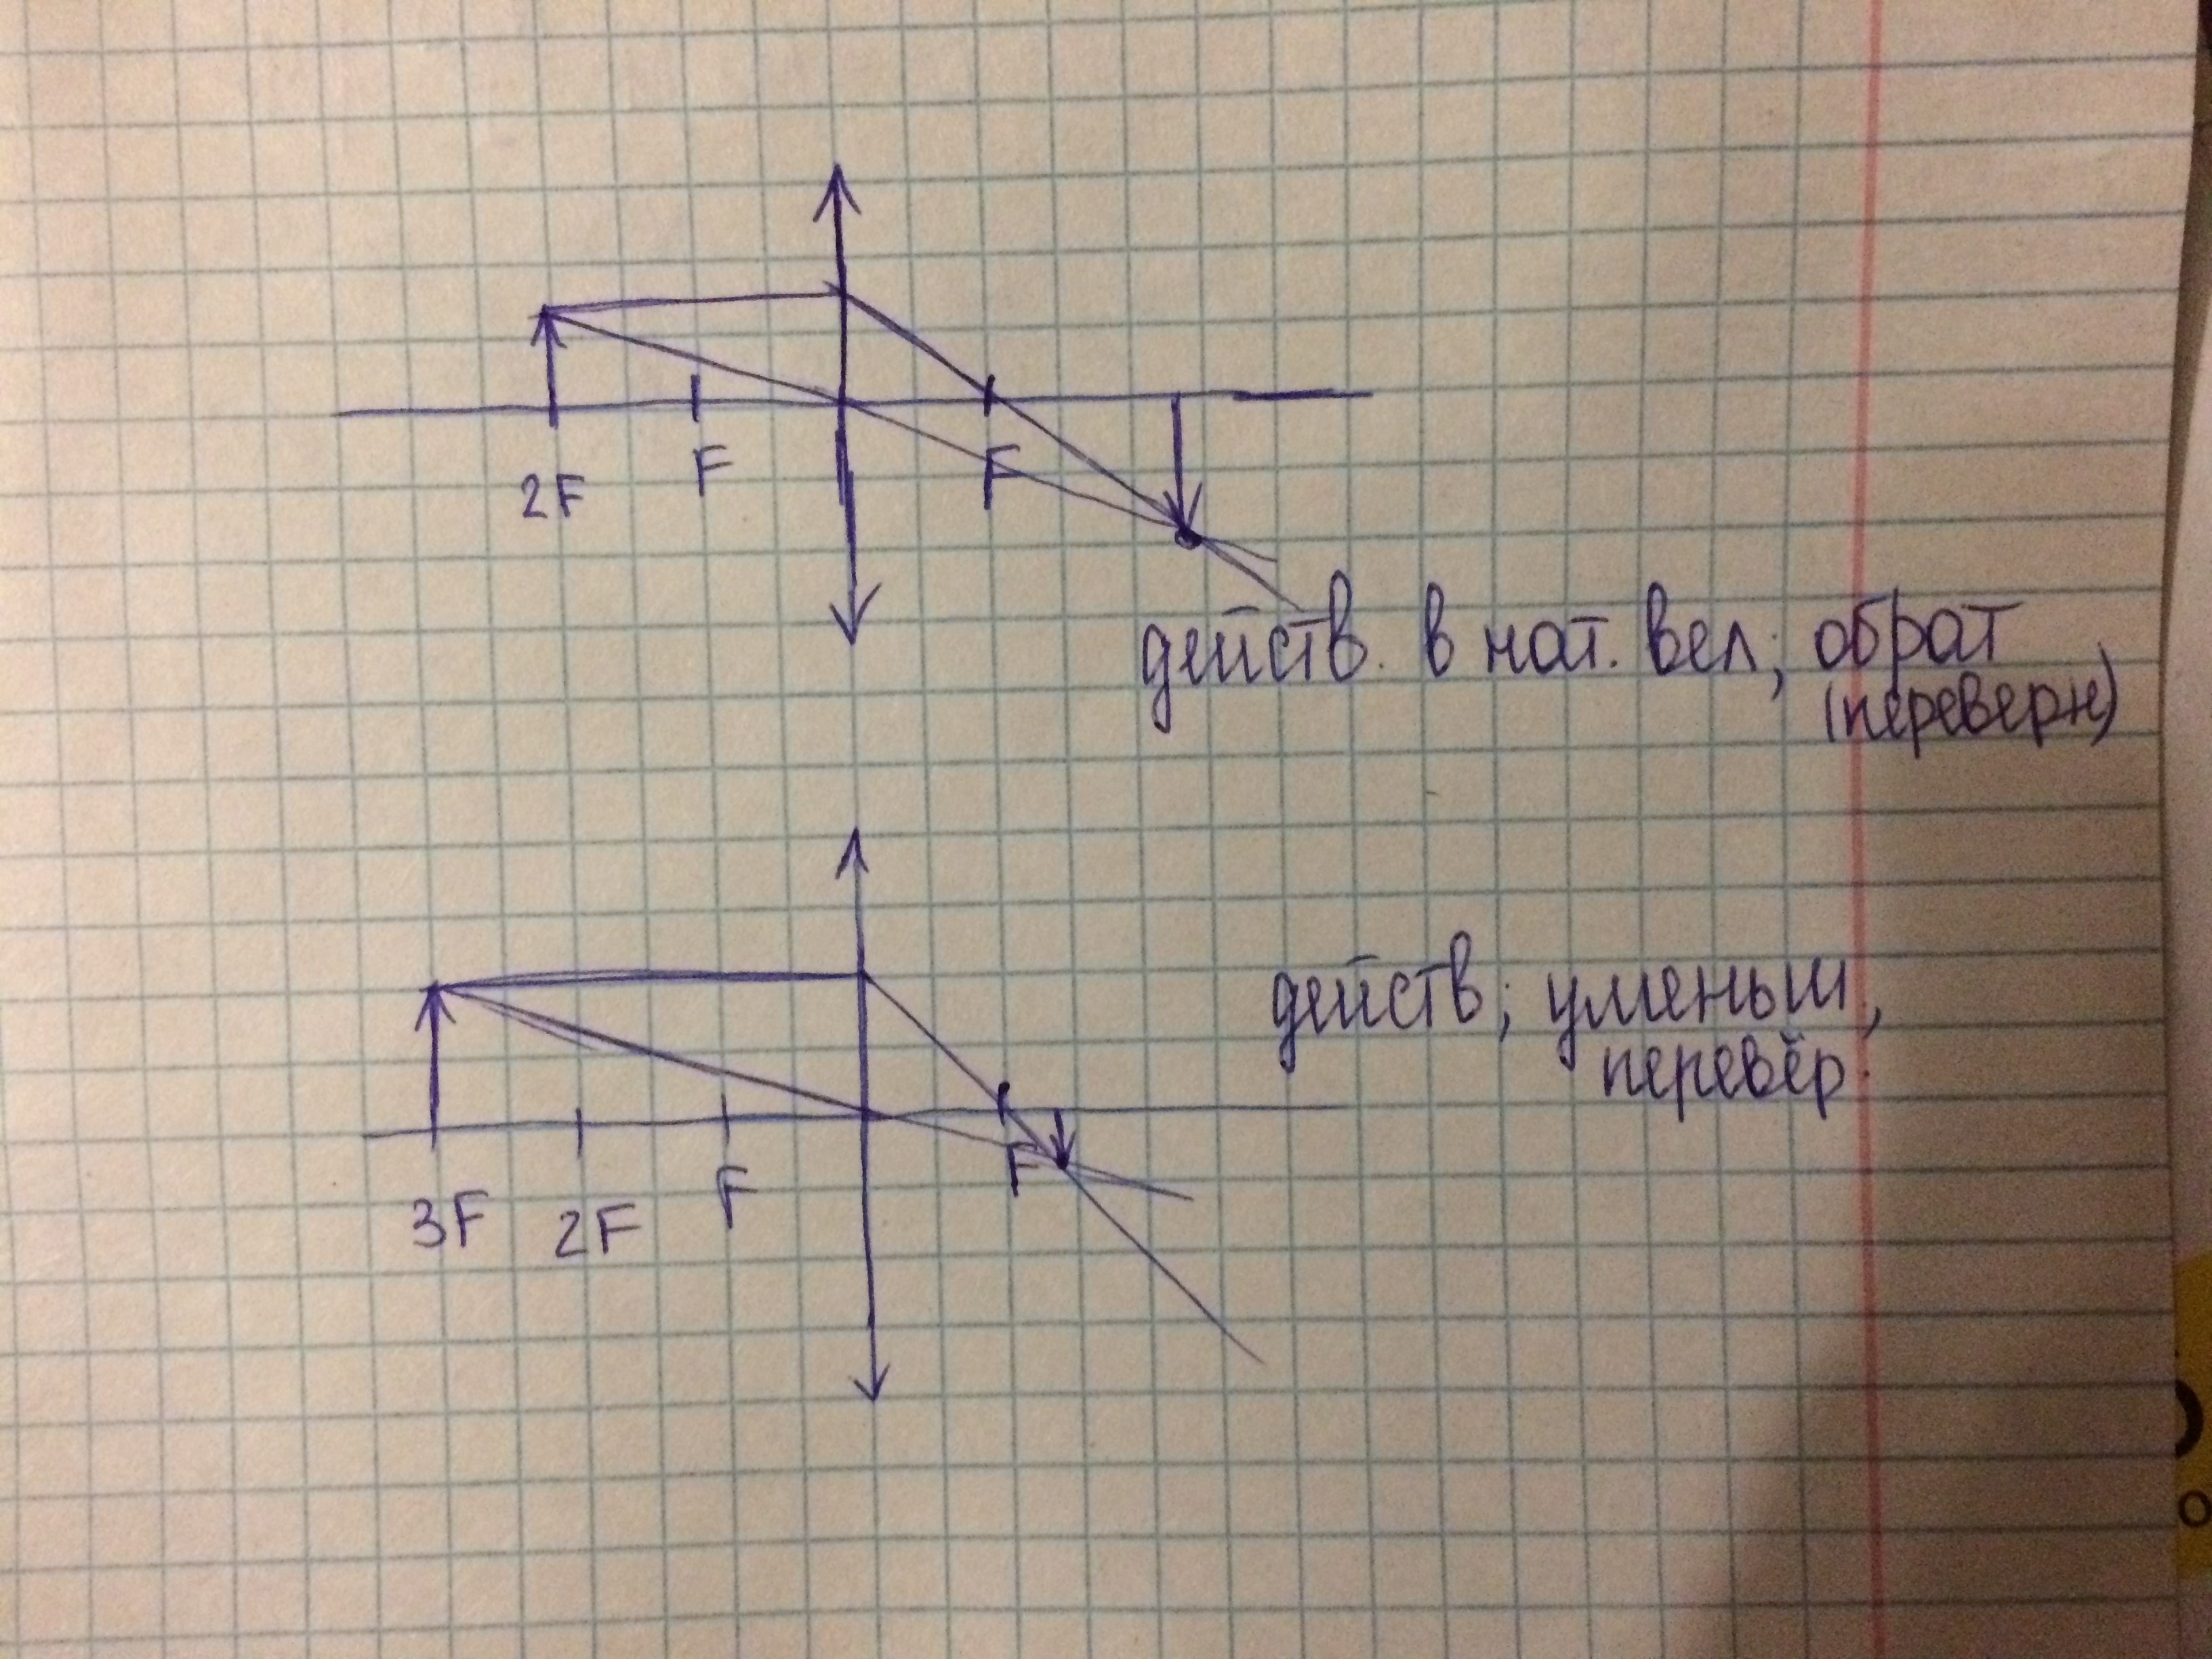 2F F F
действ. в нат. вел; обрат
(переверн)
действ; уменьш,
перевёр.
3F 2F F F